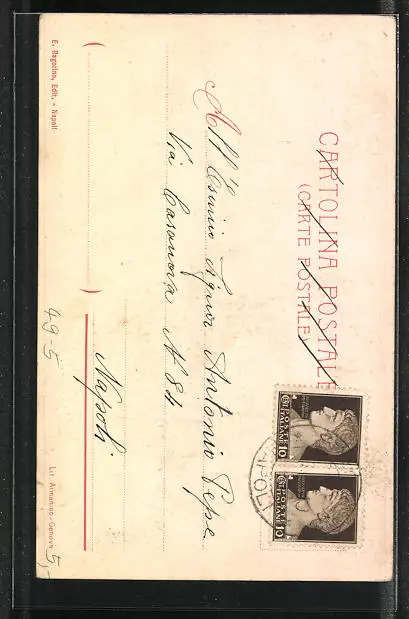 CARTOLINA POSTALE
(CARTE POSTALE)
POSTE ITALIANE
C. 10
POSTE ITALIANE
C. 10
POLI
All'Esimio Signor Antonio Pepe
Via Casanova N 84
Napoli
E. Ragozino, Edit. - Napoli
Lit. Armanino - Genova
49-5
5,-